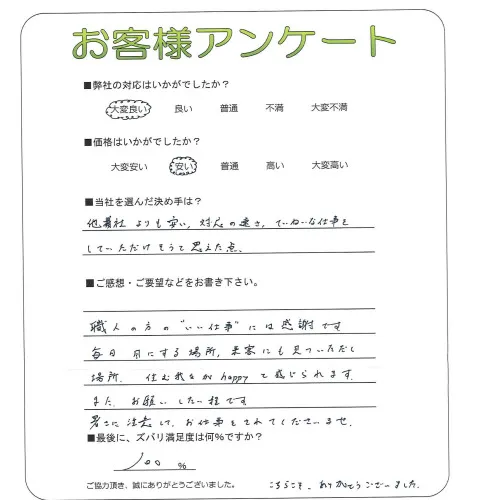 お客様アンケート
■弊社の対応はいかがでしたか？
大変良い 良い 普通 不満 大変不満
■価格はいかがでしたか？
大変安い 安い 普通 高い 大変高い
■当社を選んだ決め手は？
他業社よりも安い，対応の速さ，ていねいな仕事を
していただけそうと思えた点．
■ご感想・ご要望などをお書き下さい。
職人の方の"いい仕事"には感謝です
毎日目にする場所，来客にも見ていただく
場所．住む我々がhappyで感じられます．
また，お願いしたい程です
暑さに注意して，お仕事をされてくださいませ．
■最後に、ズバリ満足度は何%ですか？
100 %
ご協力頂き、誠にありがとうございました。 こちらこそ，ありがとうございました．